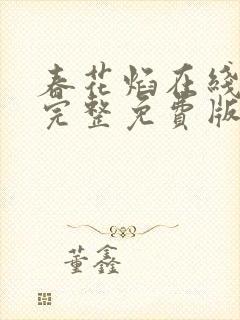 春花焰在线
完整免費版
董鑫